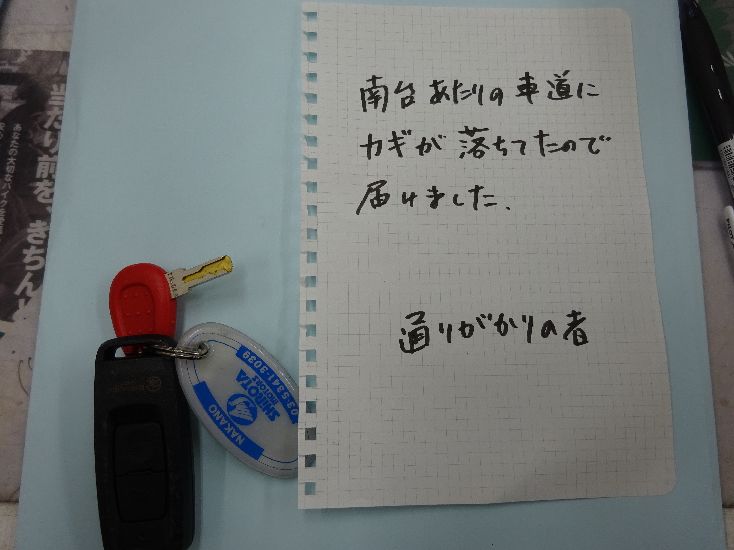 南台あたりの車道に
カギが落ちてたので
届けました.
通りがかりの者
当たり前を、きちんと
あなたの大切なバイクを
03-5341-3039
SHIROTA
MOTORS
NAKANO